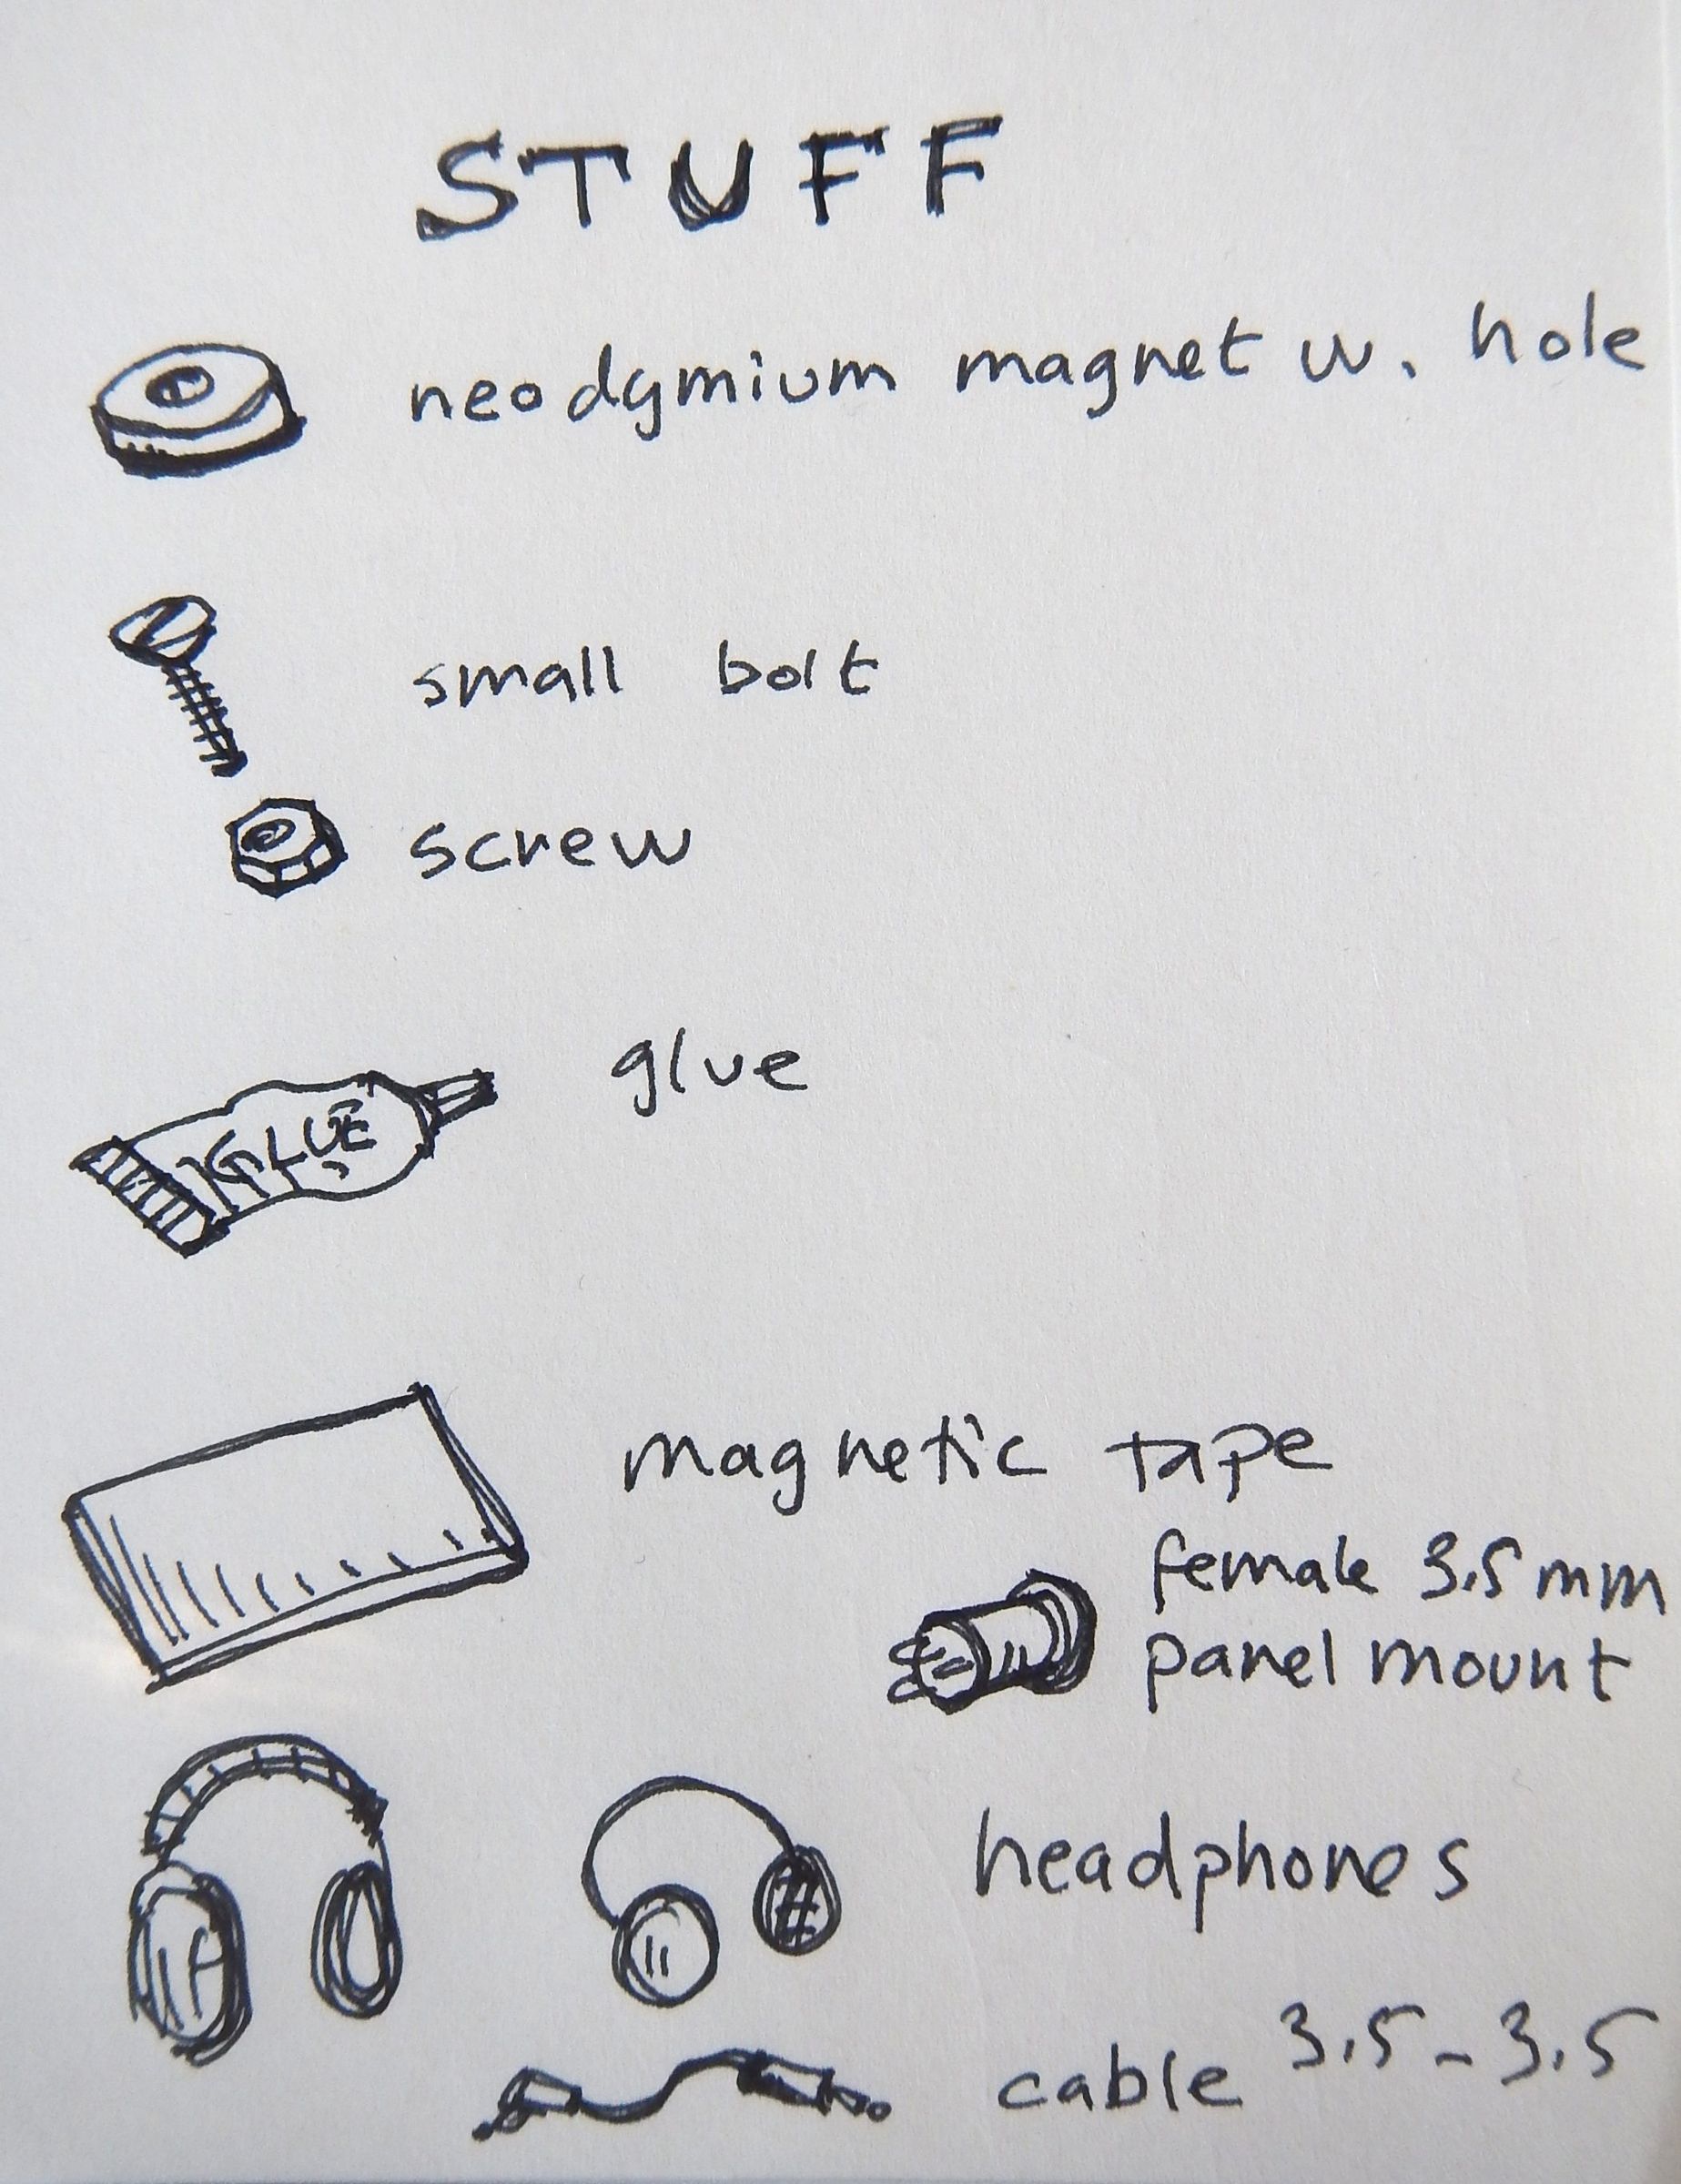 STUFF
neodymium magnet w. hole
small bolt
screw
glue
GLUE
magnetic tape
female 3.5 mm
panel mount
headphones
cable 3.5 - 3.5